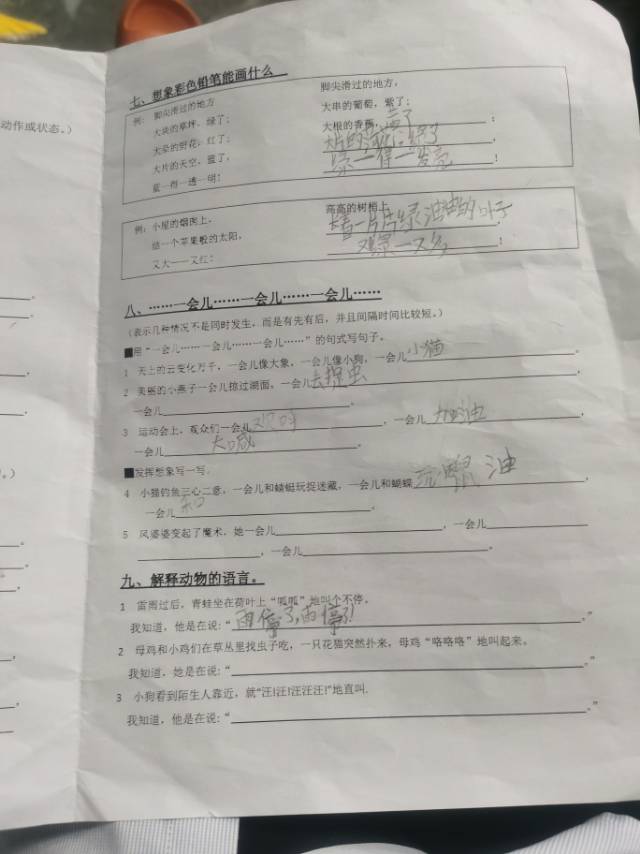 动作或状态。）
七、想象彩色铅笔能画什么
例： 脚尖滑过的地方
大块的草坪，绿了；
大朵的野花，红了；
大片的天空，蓝了，
蓝—得—透—明！
脚尖滑过的地方，
大串的葡萄，紫了；
大根的香蕉，黄了；
绿了，
绿一得一发亮！
例：小屋的烟囱上，
结一个苹果般的太阳，
又大——又红！
高高的树梢上
一片片绿油油的叶子，
又绿一又多！
八、……一会儿……一会儿……一会儿……
（表示几种情况不是同时发生，而是有先有后，并且间隔时间比较短。）
■用“一会儿……一会儿……一会儿……”的句式写句子。
1 天上的云变化万千，一会儿像大象，一会儿像小狗，一会儿小猫。
2 美丽的小燕子一会儿掠过湖面，一会儿去捉虫，
一会儿。
3 运动会上，观众们一会儿，一会儿加油，
一会儿大喊。
■发挥想象写一写。
4 小猫钓鱼三心二意，一会儿和蜻蜓玩捉迷藏，一会儿和蝴蝶玩，
一会儿和。
5 风婆婆变起了魔术，她一会儿，一会儿
，一会儿。
九、解释动物的语言。
1 雷雨过后，青蛙坐在荷叶上“呱呱”地叫个不停。
我知道，他是在说：“雨停了，雨停了！。”
2 母鸡和小鸡们在草丛里找虫子吃，一只花猫突然扑来，母鸡“咯咯咯”地叫起来。
我知道，她是在说：“。”
3 小狗看到陌生人靠近，就“汪!汪!汪汪汪!”地直叫.
我知道，他是在说：“。”